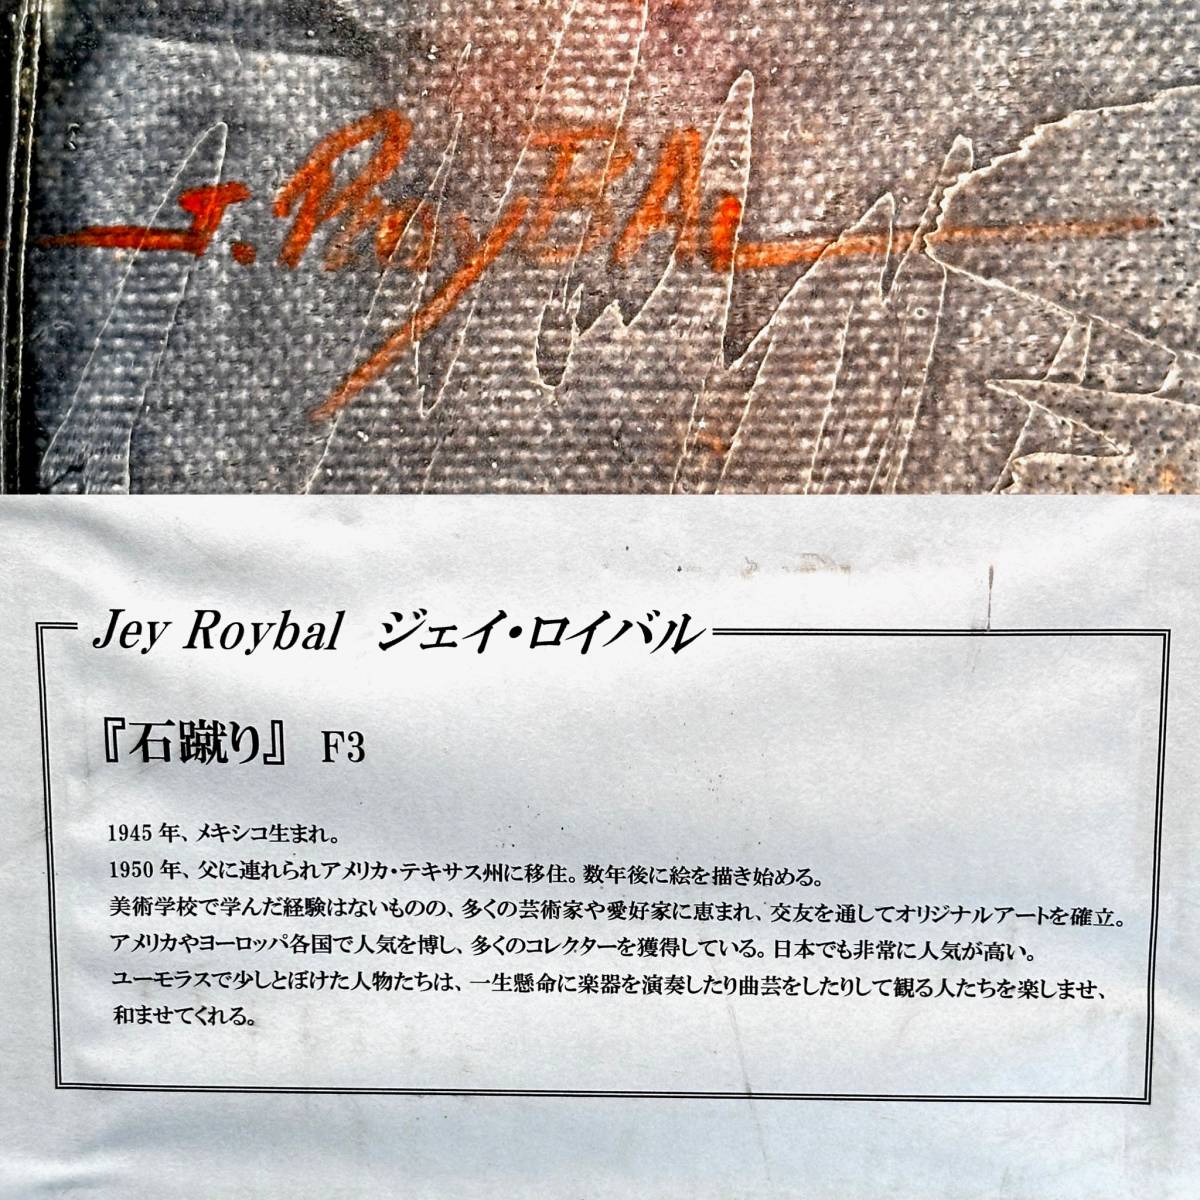 J. RoyBAl
Jey Roybal ジェイ・ロイバル
『石蹴り』 F3
1945 年、メキシコ生まれ。
1950 年、父に連れられアメリカ・テキサス州に移住。数年後に絵を描き始める。
美術学校で学んだ経験はないものの、多くの芸術家や愛好家に恵まれ、交友を通してオリジナルアートを確立。
アメリカやヨーロッパ各国で人気を博し、多くのコレクターを獲得している。日本でも非常に人気が高い。
ユーモラスで少しとぼけた人物たちは、一生懸命に楽器を演奏したり曲芸をしたりして観る人たちを楽しませ、
和ませてくれる。